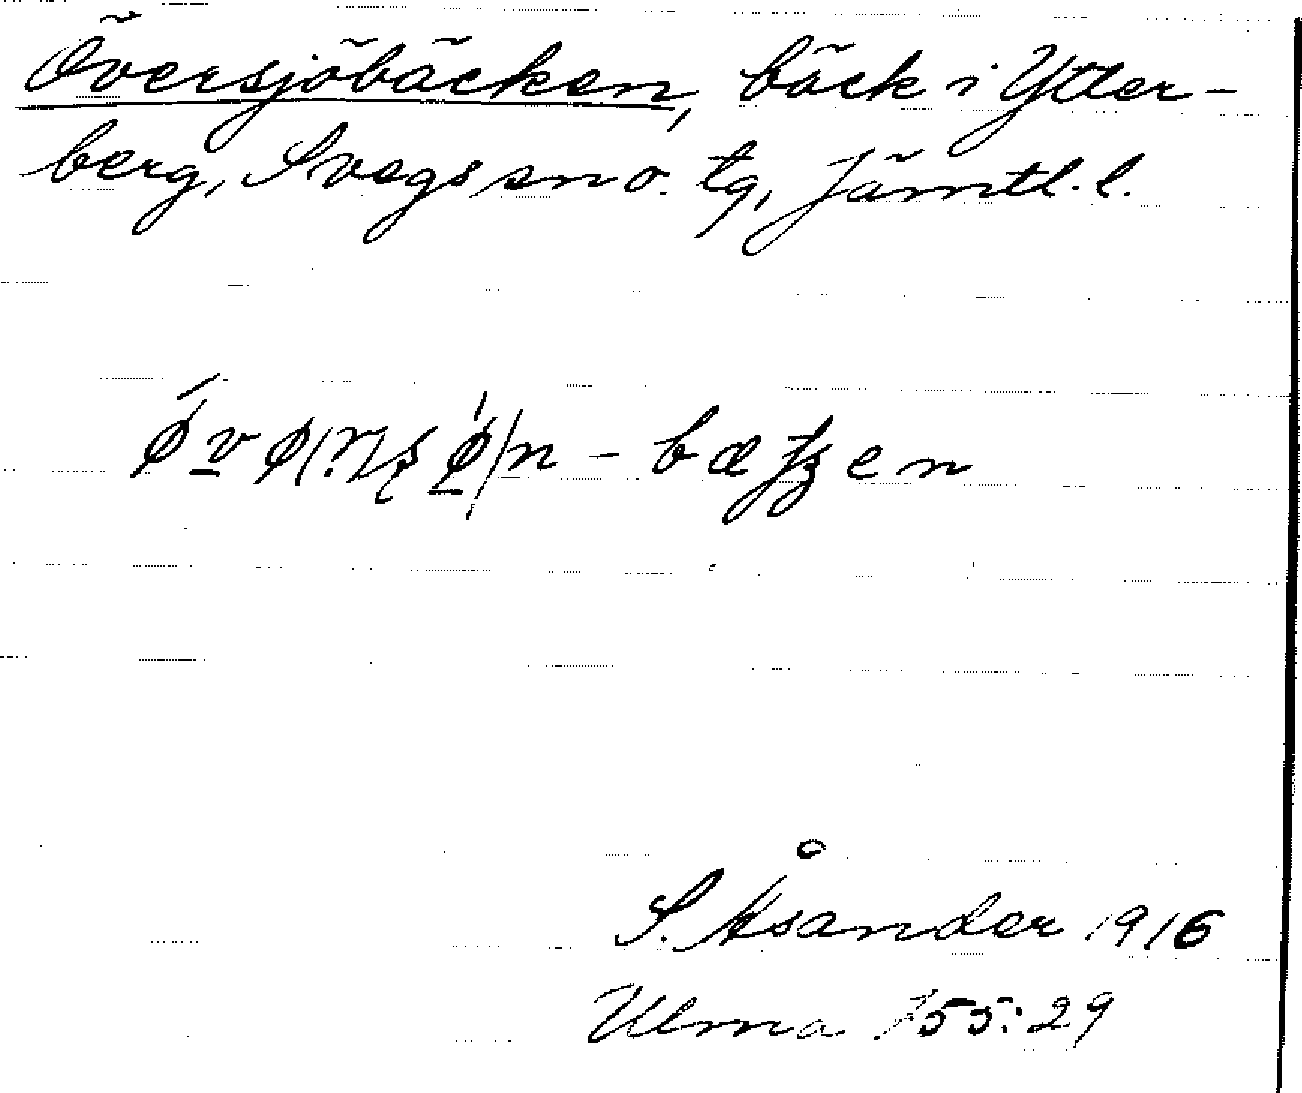 Översjöbäcken, bäck i Ytter-
berg, Svegs sn o. tg, Jämtl. l.
-bæʈʂen
S. Åsander 1916
Ulma 155:29